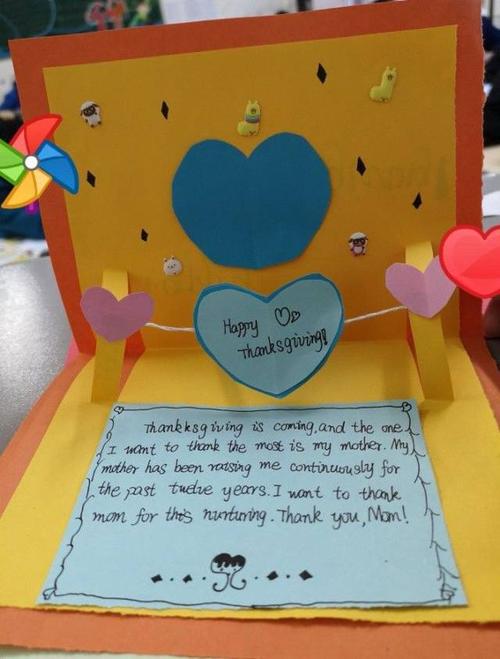 Happy
Thanksgiving!
Thankksgiving is coming, and the one
I want to thank the most is my mother. My
mother has been raising me continuously for
the past twelve years. I want to thank
mom for this nurturing. Thank you, Mom!